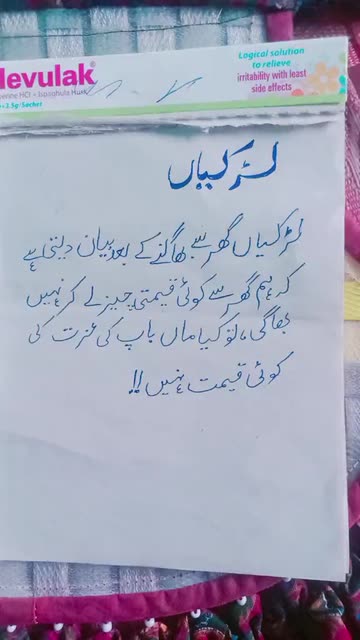 Mevulak®
Logical solution
to relieve
irritability with least
side effects
verine HCl + Ispaghula Husk
+3.5g/Sachet
لڑکیاں
لڑکیاں گھر سے بھاگنے کے بعد بیان دیتی ہے
کہ ہم گھر سے کوئی قیمتی چیز لے کر نہیں
بھاگی، تو کیا ماں باپ کی عزت کی
کوئی قیمت نہیں !!